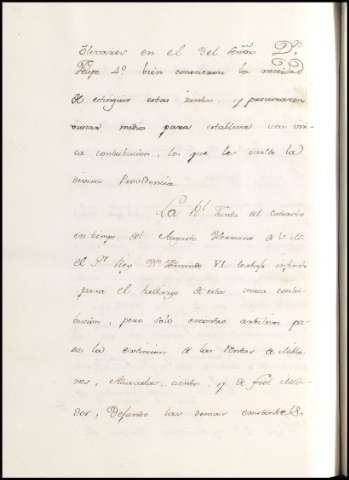 Olivares en el del Señor Dn.
Felipe 4º bien conocieron la necesidad
de extinguir estas rentas, y procuraron
buscar medios para establecer una uni-
ca contribucion, los que le la
divina Providencia.
La Rl. Junta del Catastro
en tiempo del Augusto Hermano de V. M.
el Sr. Rey Dn. Fernando VI. trabajó infinito
para el hallazgo de esta unica contri-
bucion, pero solo encontró arbitrios pa-
ra la extincion de las Rentas de Millo-
nes, Alcavalas, cientos, y de fiel Medi-
dor, Dejando las demas existentes.